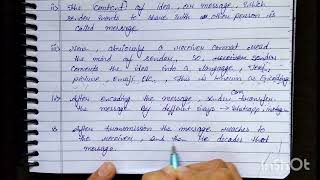 ii) The content of idea, or message, which
sender wants to share with an other person is
called message.
iii) Now, obviously a receiver cannot read
the mind of sender, so, receiver sender
converts the idea into a language, text,
picture, emoji etc., this is known as Encoding
iv) After encoding the message, sender can transfer
the message by different ways → Whatsapp,
v) After transmission the message reaches to
the receiver, and he decodes that
message.
InShOt